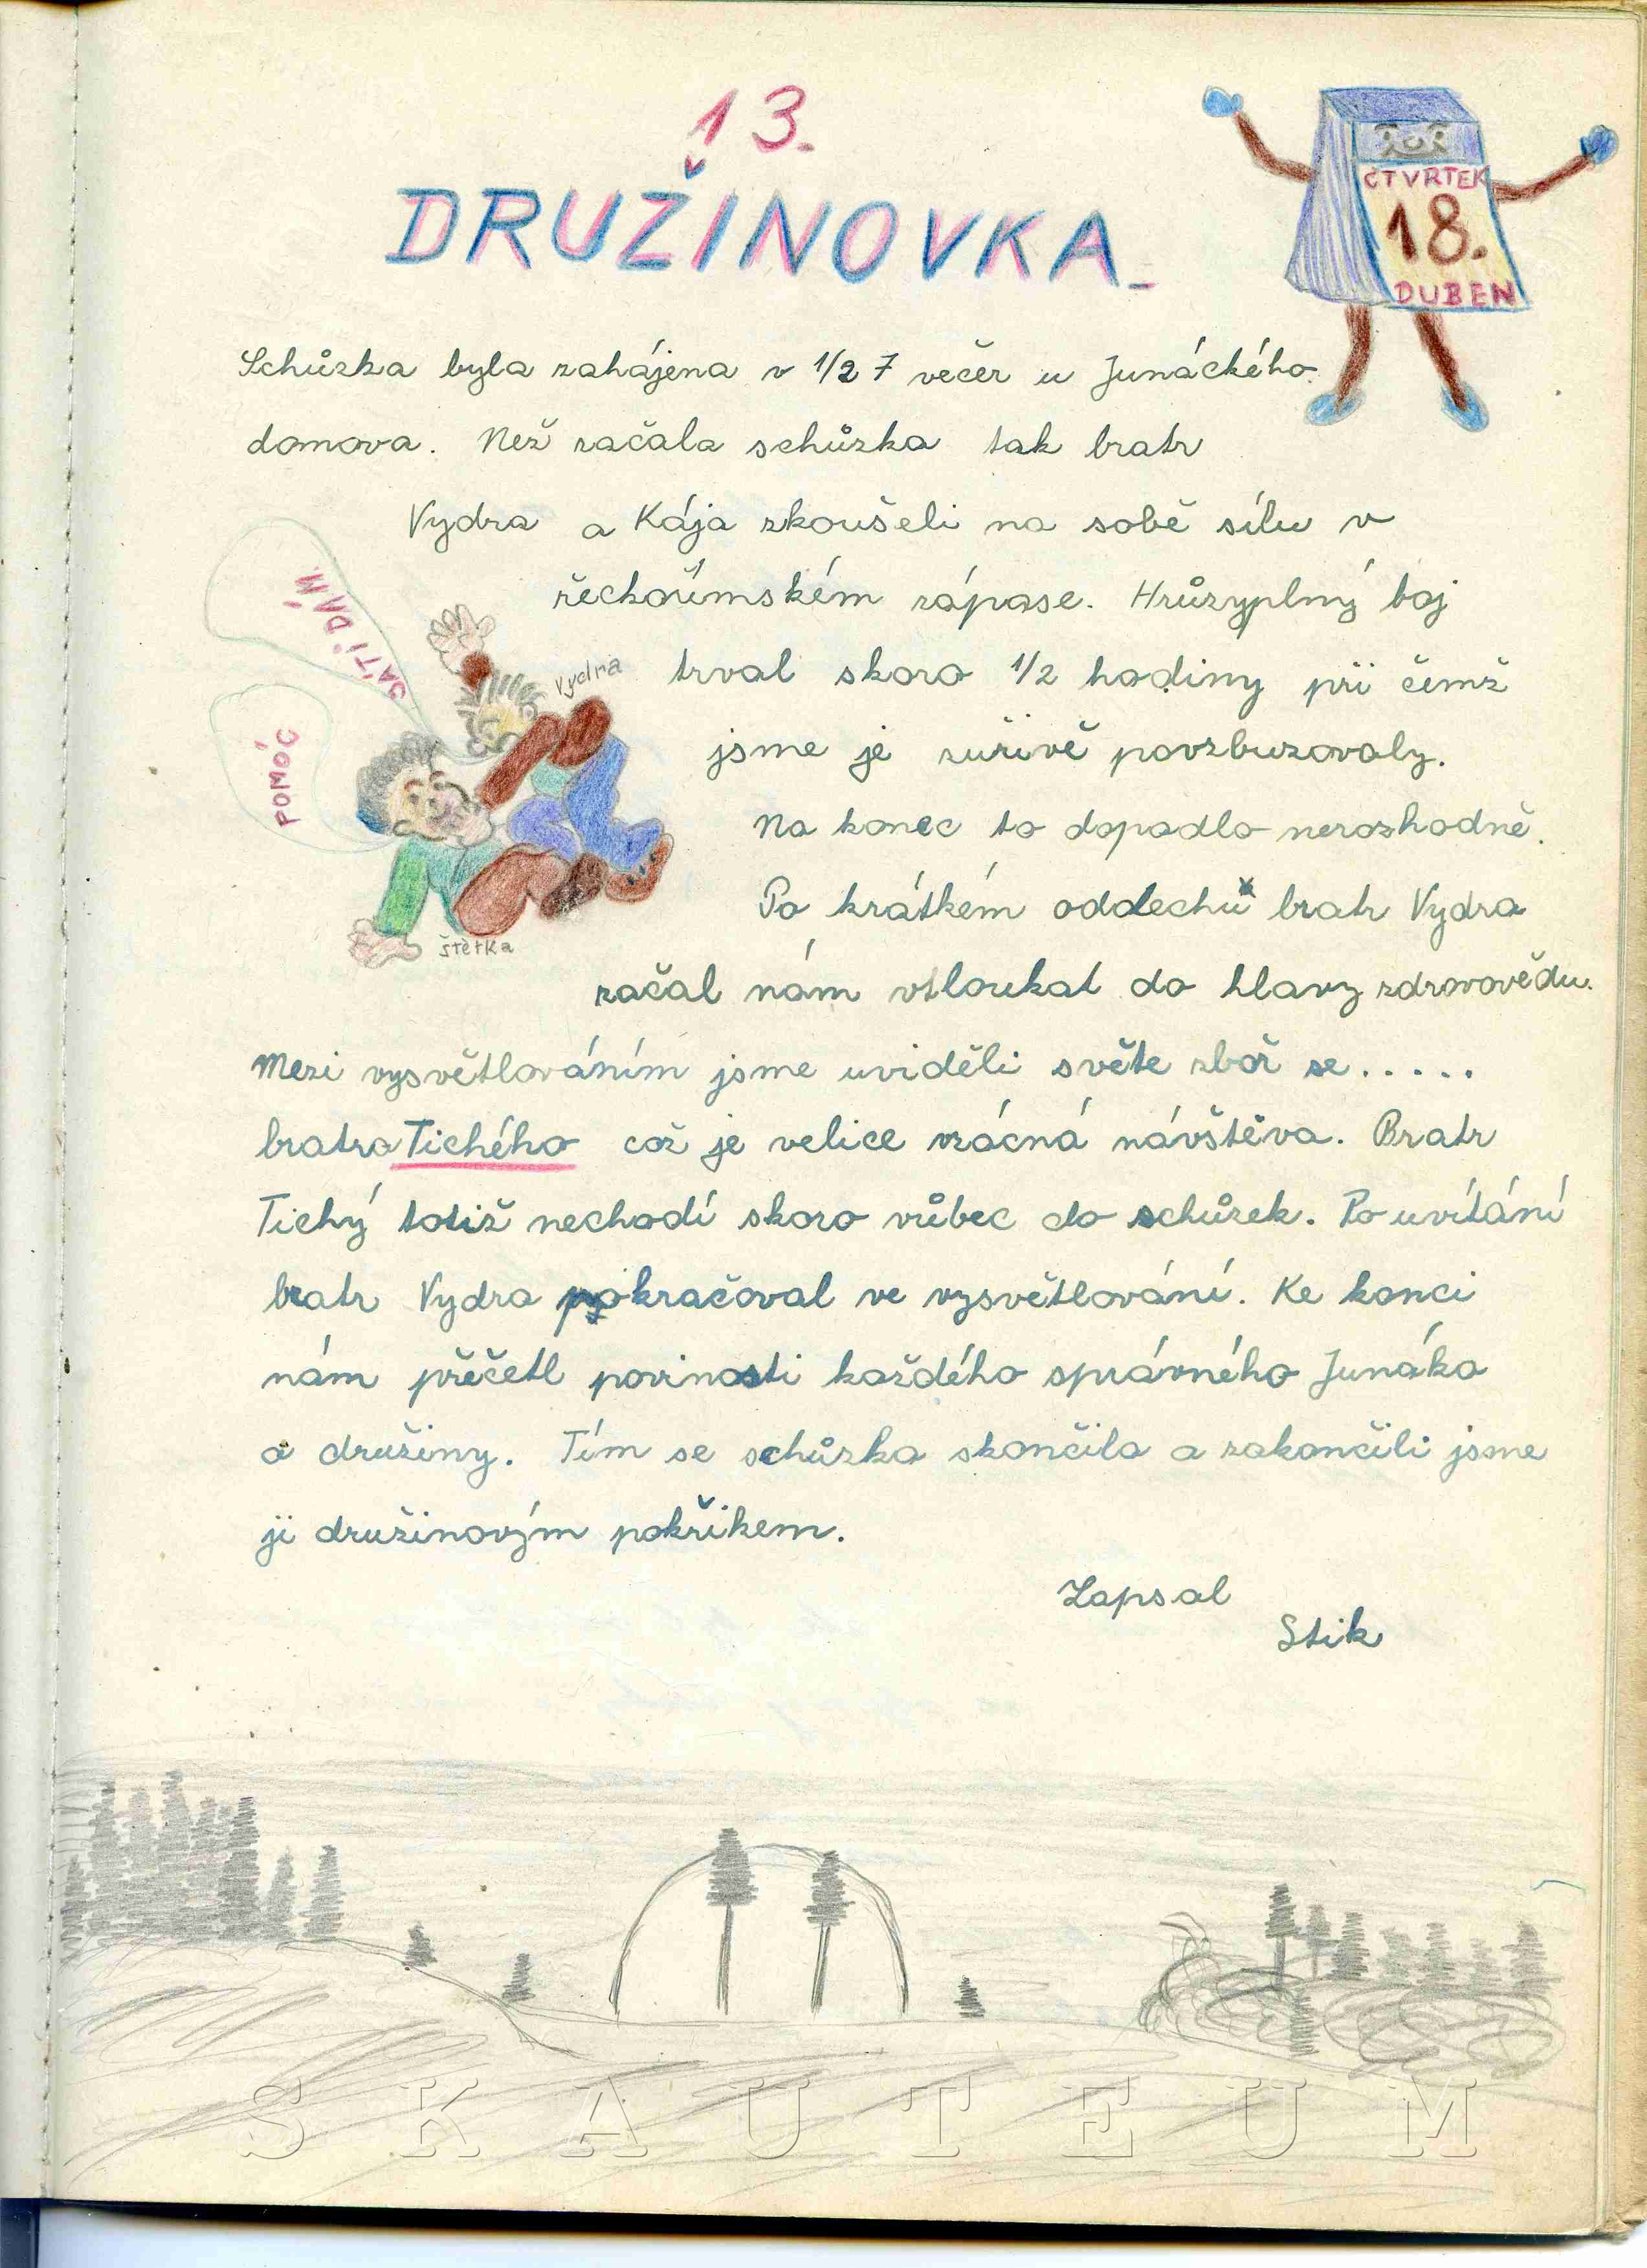 13.
DRUŽINOVKA.
ČTVRTEK
18.
DUBEN
Schůzka byla zahájena v 1/2 7 večer u Junáckého
domova. Než začala schůzka tak bratr
Vydra a Kája zkoušeli na sobě sílu v
řeckořímském zápase. Hrůzyplný boj
trval skoro 1/2 hodiny při čemž
jsme je zuřivě povzbuzovaly.
Na konec to dopadlo nerozhodně.
Po krátkém oddechu bratr Vydra
začal nám vtloukat do hlavy zdravovědu.
Mezi vysvětlováním jsme uviděli světe zboř se.....
bratra Tichého což je velice vzácná návštěva. Bratr
Tichý totiž nechodí skoro vůbec do schůzek. Po uvítání
bratr Vydra pokračoval ve vysvětlování. Ke konci
nám přečetl povinosti každého správného Junáka
a družiny. Tím se schůzka skončila a zakončili jsme
ji družinovým pokřikem.
Zapsal
Stik
JÁ TI DÁM.
POMÓC
Vydra
štětka
SKAUTEUM